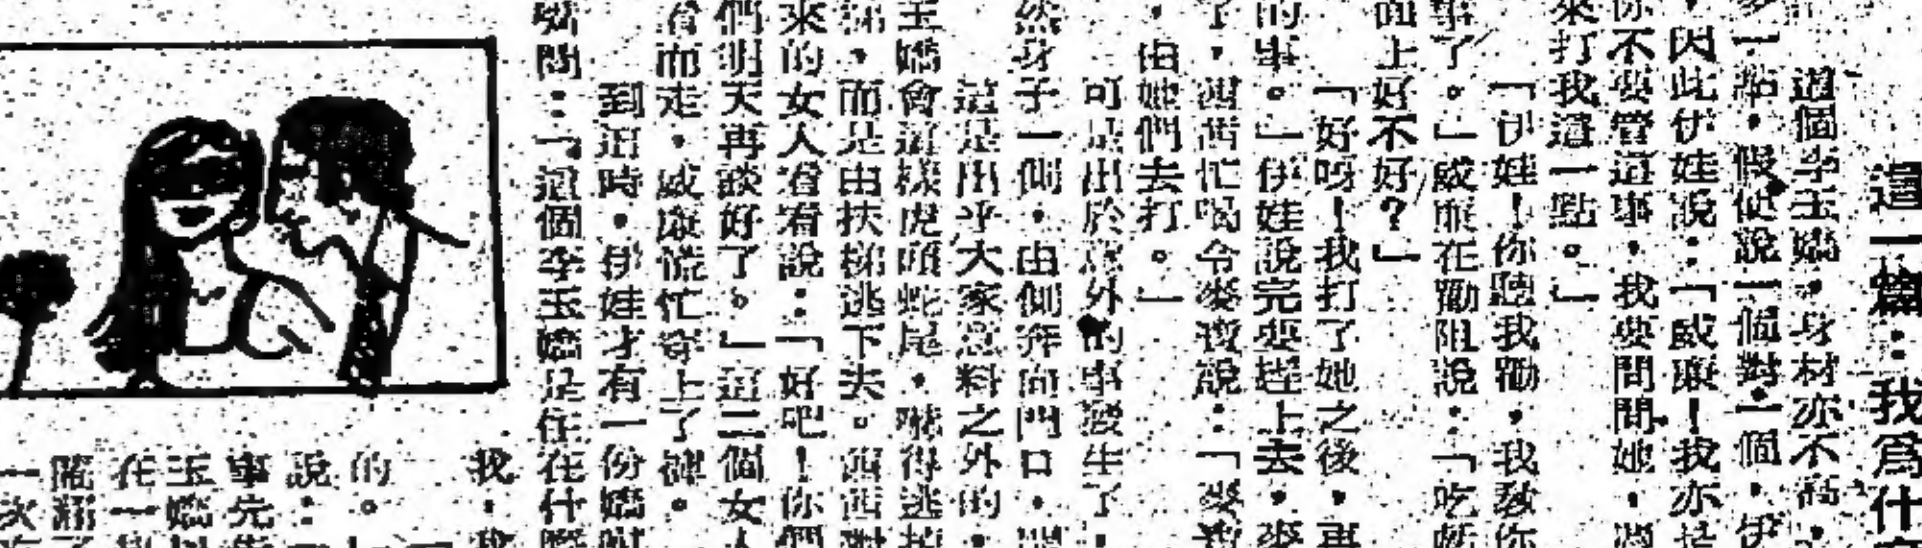 這一篇：我爲什
這個李玉嬌，身材亦不高，
多一點，假使說一個對一個，伊
，因此伊娃說：「威廉！我亦是
你不要管這事，我要問問她，
來打我這一點。」
「伊娃！你聽我勸，我教你
事了。」威廉在勸阻說：「吃
面上好不好？」
「好呀！我打了她之後，再
的事。」伊娃說完要趕上去，麥
了，茜茜忙喝令麥寶說：「麥寶
，由她們去打。」
可是出於意外的事發生了：
然身子一側，由側奔向門口，
這是出乎大家意料之外的：
玉嬌會這樣虎頭蛇尾，嚇得逃
梯，而是由扶梯逃下去。茜茜對
來的女人看看說：「好吧！你們
們明天再談好了。」這二個女人
着而走，威廉慌忙穿上了褲。
到這時，伊娃才有一份嬌
嬌問：「這個李玉嬌是住在什麼
我，我
的。
說：
事先
玉嬌
在一
一次